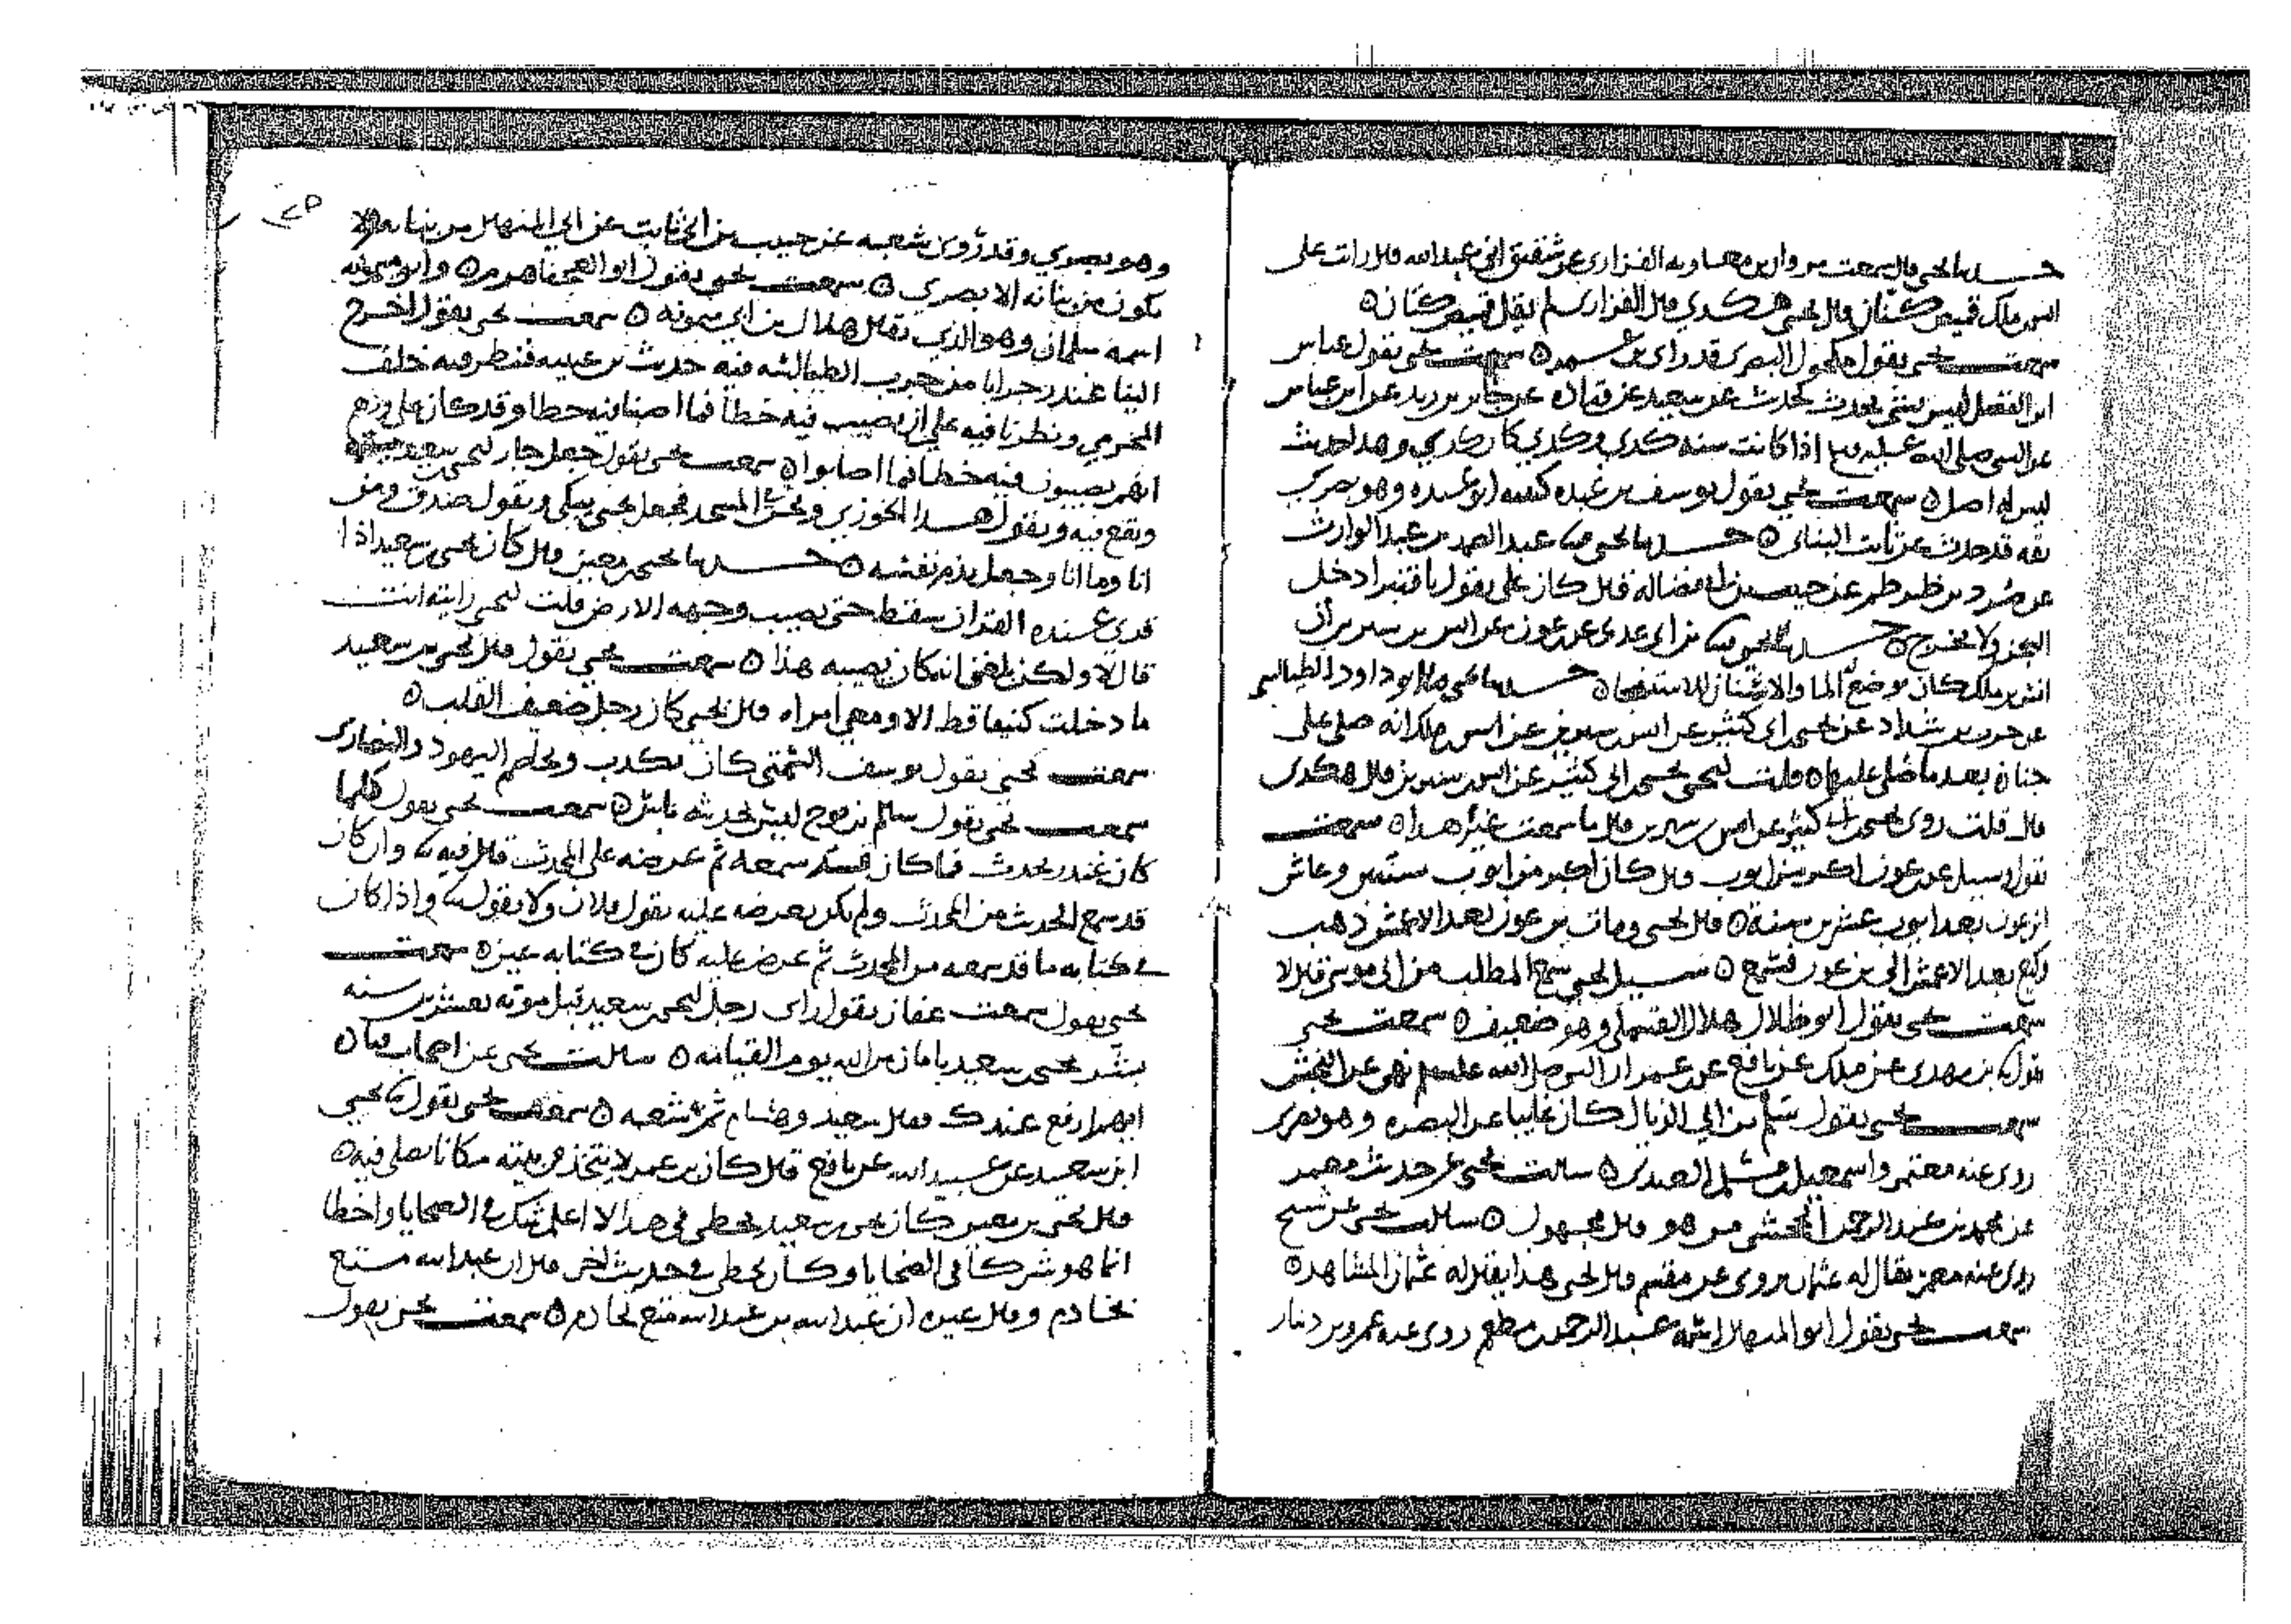 حدثنا يحيى قال سمعت مروان بن معاويه الفزاري عن شقيق ابي عبد الله قال رايت على
انس بن ملك قميص كتان قال يحيى هكدي قال الفزاري لم يقل قميص كتان ه
سمعت يحيى يقول مكحول البصري قد راى بن عمر ه سمعت يحيى يقول عباس
ابو الفضل ليس بشي يحدث بحديث عن سعيد عن قتاده عن جابر بن زيد عن ابن عباس
عن النبي صلى الله عليه وسلم اذا كانت سنه كدي وكدي كان كدي وهدا حديث
ليس له اصل ه سمعت يحيى يقول يوسف بن عبده كنيته ابو عبده وهو بصري
ثقه قد حدث عن ثابت البناني ه حدثنا يحيى ثنا عبد الصمد بن عبد الوارث
عن حبيب بن فضاله قال كان على يقول يا قنبر ادخل
ولا يخرج ه حدثنا يحيى ثنا بن ابي عدي عن بن عون عن انس بن سيرين ان
انس بن ملك كان يوضع له الما والاشنان للاستنجاه حدثنا يحيى قال ابو داود الطيالسي
عن حرب بن شداد عن يحيى بن ابي كثير عن انس بن سيرين عن انس بن ملك انه صلى على
جنازه بعد ما صلي عليها ه قلت ليحيى يحيى بن ابي كثير عن انس بن سيرين قال هكدي
قال قلت روى يحيى بن ابي كثير عن انس بن سيرين قال ما سمعت غير هدا ه سمعت
يقول وسيل بن عون اكبر من ايوب قال كان اكبر من ايوب بسنتين وعاش
ابن عون بعد ايوب عشرين سنة ه قال يحيى ومات بن عون بعد الاعمش ذهب
وكيع بعد الاعمش الى بن عون فسمع ه سيل يحيى سمع المطلب من ابي موسى قال لا
سمعت يحيى يقول ابو ظلال هلال القسملي وهو ضعيف ه سمعت يحيى
يقول ثنا بن مهدي عن ملك عن نافع عن بن عمر ان النبي صلى الله عليه وسلم نهى عن النجش
سمعت يحيى يقول سلم بن ابي الذيال كان غايبا عن البصره وهو بصري
روى عنه معتمر واسمعيل بن مسلم العبدي ه سالت يحيى عن حديث معمر
عن محمد بن عبد الرحمن الجحشي من هو قال مجهول ه سالت يحيى عن شيخ
روى عنه معمر يقال له عثمان يروي عن مقسم قال يحيى هدا يقال له عثمان المشاهد ه
سمعت يحيى يقول ابو المنهال اسمه عبد الرحمن بن مطعم روى عنه عمرو بن دينار
وهو بصري وقد روى شعبه عن حبيب بن ابي ثابت عن ابي المنهال من بنانه ولا
يكون من بنانه الا بصري ه سمعت يحيى يقول ابو العجفا هرم ه وابو ميمونه
اسمه سلمان وهو الذي يقال هلال بن ابي ميمونه ه سمعت يحيى يقول اخرج
الينا غندر جرابا من جرب الطيالسه فيه حديث بن عيينه فنظر فيه خلف
المخرمي ونظرنا فيه على ان نصيب فيه خطا فما اصبنا فيه خطا وقد كان على وزعم
انهم يصيبون فيه خطا فما اصابوا ه سمعت يحيى يقول جعل جار ليحيى بن سعيد
ويقع فيه ويقول هدا الخوزي ونحن في المسجد فجعل يحيى يبكي ويقول صدق ومن
انا وما انا وجعل يذم نفسه ه حدثنا يحيى بن معين قال كان يحيى بن سعيد اذا
قرى عنده القران سقط حتى يصيب وجهه الارض قلت ليحيى رايته انت
قال لا ولكن بلغني انه كان يصيبه هذا ه سمعت يحيى يقول قال يحيى بن سعيد
ما دخلت كنيفا قط الا ومعي امراه قال يحيى كان رجل ضعيف القلب ه
سمعت يحيى يقول يوسف السمتي كان يكدب ويخاصم اليهود والنصارى
سمعت يحيى يقول سالم بن نوح ليس بحديثه باس ه سمعت يحيى يقول كلما
كان غندر يحدث فما كان قد سمعه ثم عرضه على المحدث قال فيه ثنا وان كان
قد سمع الحديث من المحدث ولم يكن يعرضه عليه يقول فلان ولا يقول ثنا واذا كان
في كتابه ما قد سمعه من المحدث ثم عرض عليه كان في كتابه عين ه سمعت
يحيى يقول سمعت عفان يقول راى رجل ليحيى بن سعيد قبل موته بعشرين سنه
بشر يحيى بن سعيد بامان من الله يوم القيامه ه سالت يحيى عن اصحاب قتاده
ايهم ارفع عندك قال سعيد وهشام ثم شعبه ه سمعت يحيى يقول ثنا يحيى
ابن سعيد عن عبيد الله عن نافع قال كان بن عمر لا يتخذ من بيته مكانا يصلي فيه ه
قال يحيى بن معين كان يحيى بن سعيد يخطي في هدا لا اعلم شك في الصحايا واخطا
انما هو شركا في الضحايا وكان يخطي في حديث اخر قال ان عبد الله متع
بخادم وقال غيره ان عبد الله بن عبد الله متع بخادم ه سمعت يحيى يقول